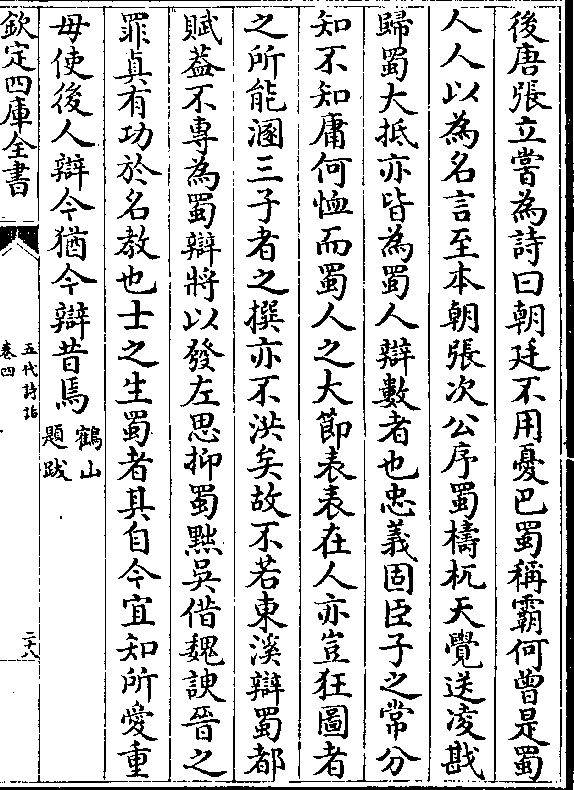 後唐張立嘗為詩曰朝廷不用憂巴蜀稱霸何曽是蜀
人人以為名言至本朝張次公序蜀檮杌天覺送凌戡
歸蜀大抵亦皆為蜀人辯數者也忠義固臣子之常分
知不知庸何恤而蜀人之大節表表在人亦豈狂圖者
之所能溷三子者之撰亦不洪矣故不若東溪辯蜀都
賦葢不專為蜀辯將以發左思抑蜀黜吳借魏諛晉之
罪真有功於名教也士之生蜀者其自今宜知所愛重
毋使後人辯今猶今辯昔焉 鶴山題跋
欽定四庫全書
五代詩話
卷四
二十八